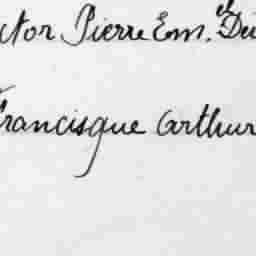 ctor Pierre Em.el Du
Francisque Arthur